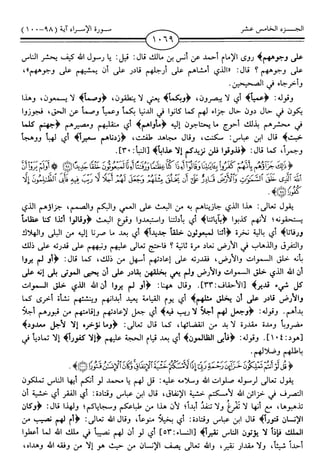 الجزء الخامس عشر
سورة الإسراء آية (٩٨-١٠٠)
١٠٦٩
على وجوههم﴾ روى الإمام أحمد عن أنس بن مالك قال: قيل: يا رسول الله كيف يحشر الناس
على وجوههم؟ قال: «الذي أمشاهم على أرجلهم قادر على أن يمشيهم على وجوههم»،
وأخرجاه في الصحيحين.
وقوله: ﴿عمياً﴾ أي لا يبصرون، ﴿وبكماً﴾ يعني لا ينطقون، ﴿وصماً﴾ لا يسمعون، وهذا
يكون في حال دون حال جزاء لهم كما كانوا في الدنيا بكماً وعمياً وصماً عن الحق، فجوزوا
في محشرهم بذلك أحوج ما يحتاجون إليه ﴿مأواهم﴾ أي منقلبهم ومصيرهم ﴿جهنم كلما
خبت﴾ قال ابن عباس: سكنت، وقال مجاهد طفئت، ﴿زدناهم سعيراً﴾ أي لهباً ووهجاً
وجمراً، كما قال: ﴿فذوقوا فلن نزيدكم إلا عذاباً﴾ [النبأ: ٣٠].
﴿ذَلِكَ جَزَاؤُهُم بِأَنَّهُمْ كَفَرُوا بِآيَاتِنَا وَقَالُوا أَإِذَا كُنَّا عِظَامًا وَرُفَاتًا أَإِنَّا لَمَبْعُوثُونَ خَلْقًا جَدِيدًا ۞ أَوَلَمْ يَرَوْا أَنَّ
اللَّهَ الَّذِي خَلَقَ السَّمَاوَاتِ وَالْأَرْضَ قَادِرٌ عَلَى أَن يَخْلُقَ مِثْلَهُمْ وَجَعَلَ لَهُمْ أَجَلًا لَّا رَيْبَ فِيهِ فَأَبَى الظَّالِمُونَ إِلَّا
كُفُورًا ۞﴾.
يقول تعالى: هذا الذي جازيناهم به من البعث على العمي والبكم والصمم، جزاؤهم الذي
يستحقونه؛ لأنهم كذبوا ﴿بآياتنا﴾ أي بأدلتنا واستبعدوا وقوع البعث ﴿وقالوا أئذا كنا عظاماً
ورفاتا﴾ أي بالية نخرة ﴿أئنا لمبعوثون خلقاً جديداً﴾ أي بعد ما صرنا إليه من البلى والهلاك
والتفرق والذهاب في الأرض نعاد مرة ثانية؟ فاحتج تعالى عليهم ونبههم على قدرته على ذلك
بأنه خلق السموات والأرض، فقدرته على إعادتهم أسهل من ذلك، كما قال: ﴿أو لم يروا
أن الله الذي خلق السموات والأرض ولم يعي بخلقهن بقادر على أن يحيى الموتى بلى إنه على
كل شيء قدير﴾ [الأحقاف: ٣٣]. وقال ههنا: ﴿أو لم يروا أن الله الذي خلق السموات
والأرض قادر على أن يخلق مثلهم﴾ أي يوم القيامة يعيد أبدانهم وينشئهم نشأة أخرى كما
بدأهم. وقوله: ﴿وجعل لهم أجلاً لا ريب فيه﴾ أي جعل لإعادتهم وإقامتهم من قبورهم أجلاً
مضروباً ومدة مقدرة لا بد من انقضائها، كما قال تعالى: ﴿وما نؤخره إلا لأجل معدود﴾
[هود: ١٠٤]. وقوله: ﴿فأبى الظالمون﴾ أي بعد قيام الحجة عليهم ﴿إلا كفورا﴾ إلا تمادياً في
باطلهم وضلالهم.
﴿قُل لَّوْ أَنتُمْ تَمْلِكُونَ خَزَائِنَ رَحْمَةِ رَبِّي إِذًا لَّأَمْسَكْتُمْ خَشْيَةَ الْإِنفَاقِ وَكَانَ الْإِنسَانُ قَتُورًا ۞﴾.
يقول تعالى لرسوله صلوات الله وسلامه عليه: قل لهم يا محمد لو أنكم أيها الناس تملكون
التصرف في خزائن الله لأمسكتم خشية الإنفاق، قال ابن عباس وقتادة: أي الفقر أي خشية أن
تذهبوها، مع أنها لا تفرغ ولا تنفد أبداً؛ لأن هذا من طباعكم وسجاياكم؛ ولهذا قال: ﴿وكان
الإنسان قتوراً﴾ قال ابن عباس وقتادة: أي بخيلاً منوعاً، وقال الله تعالى: ﴿أم لهم نصيب من
الملك فإذاً لا يؤتون الناس نقيراً﴾ [النساء: ٥٣] أي لو أن لهم نصيباً في ملك الله لما أعطوا
أحداً شيئاً، ولا مقدار نقير، والله تعالى يصف الإنسان من حيث هو إلا من وفقه الله وهداه،